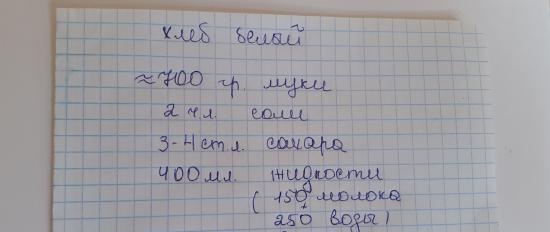 хлеб белый
≈700 гр. муки
2 ч.л. соли
3-4 ст.л. сахара
400 мл. жидкости
( 150 молока
+
250 воды)